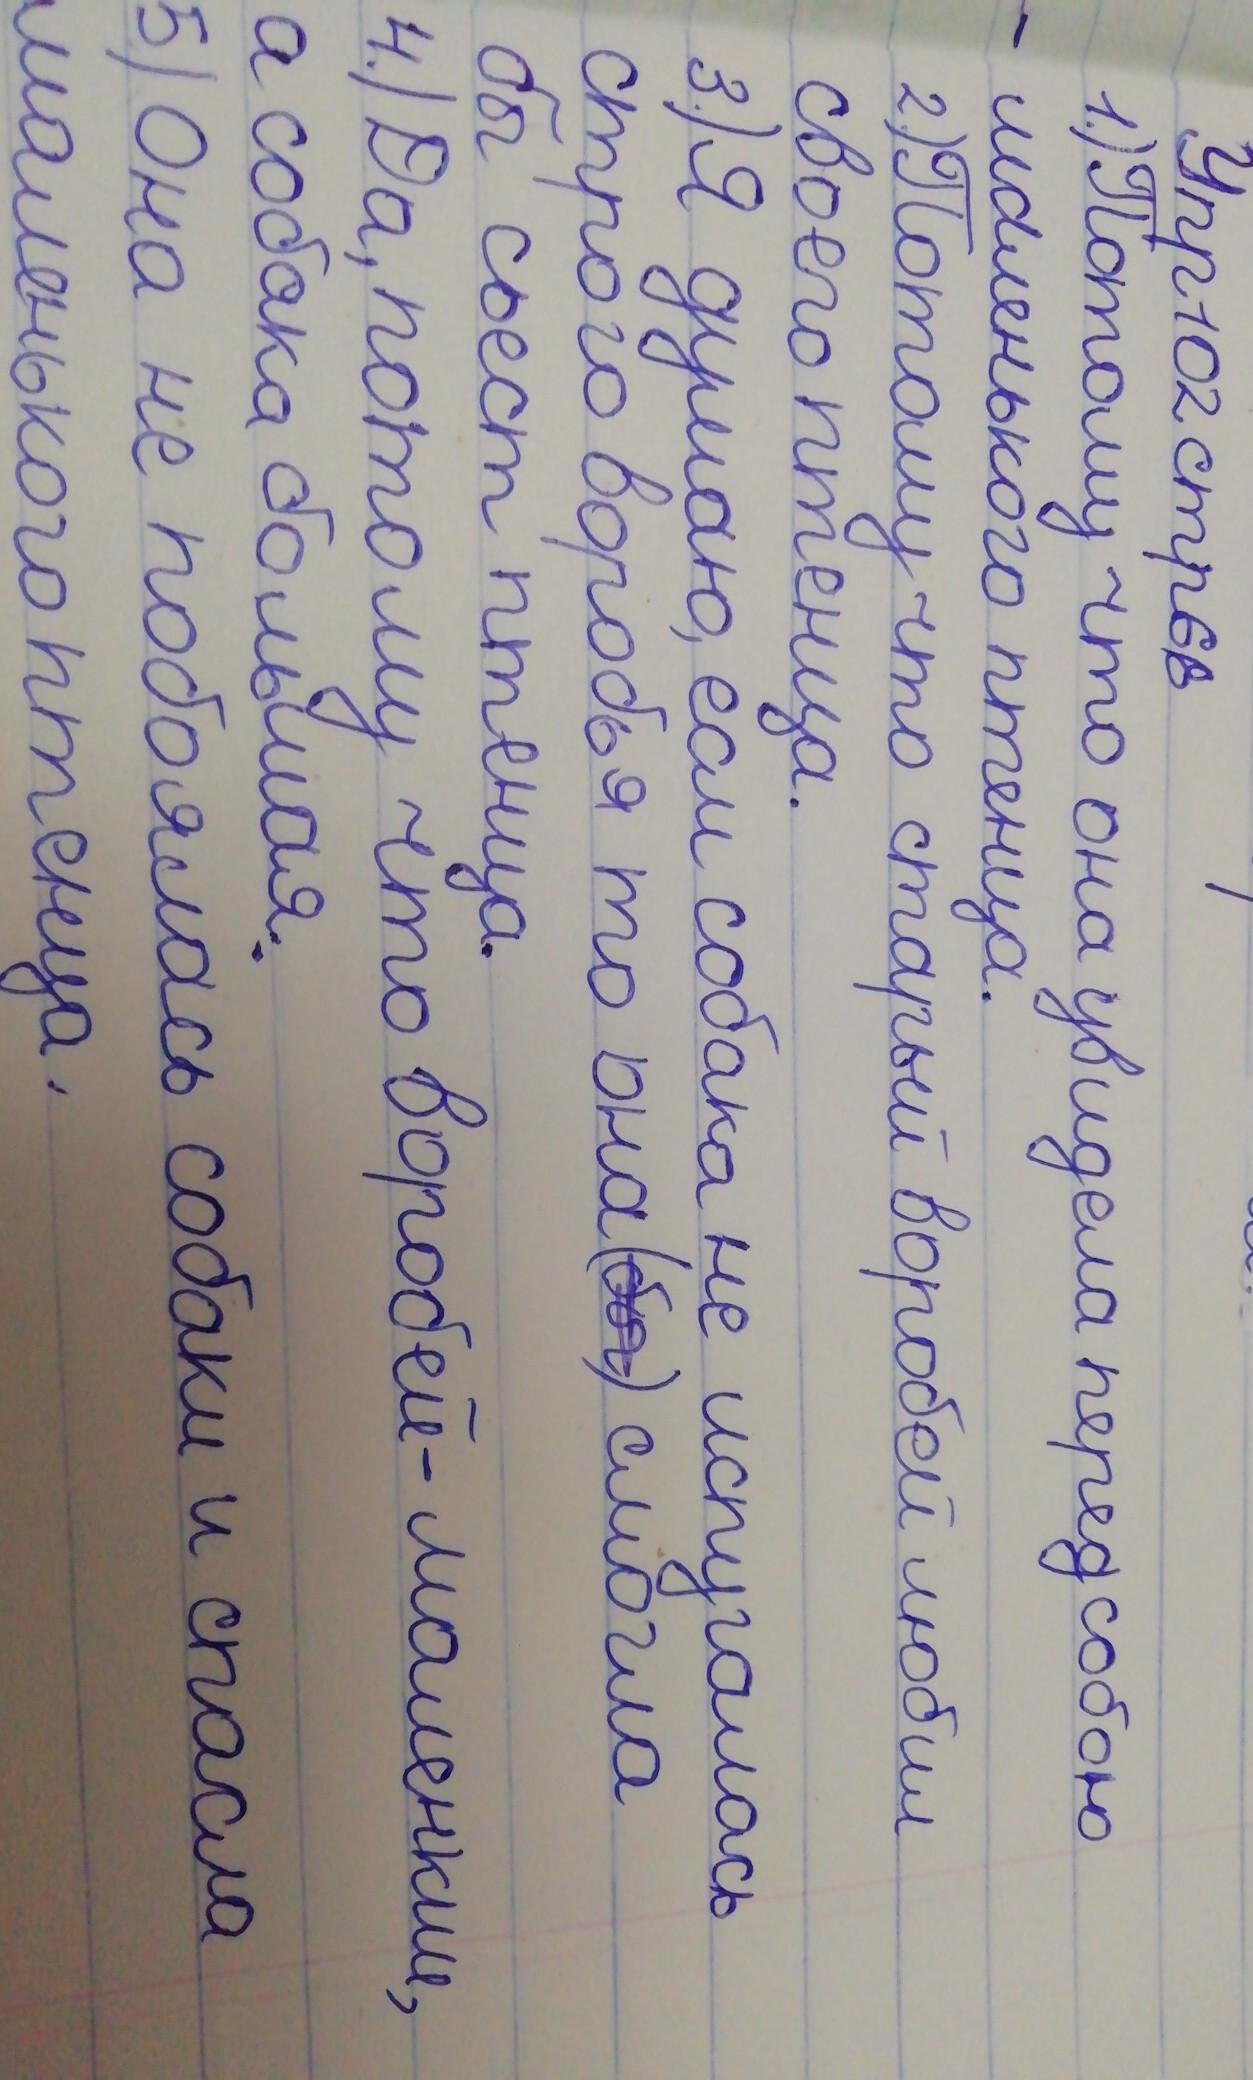 Упр 102 стр 68
1.) Потому что она увидела перед собою
- маленького птенца.
2.) Потому что старый воробей любил
своего птенца.
3.) Я думаю, если собака не испугалась
строго воробья то она (бы) смогла
бы сьест птенца.
4.) Да, потому что воробей - маленкий,
а собака большая.
5) Она не побоялась собаки и спасла
маленького птенца.